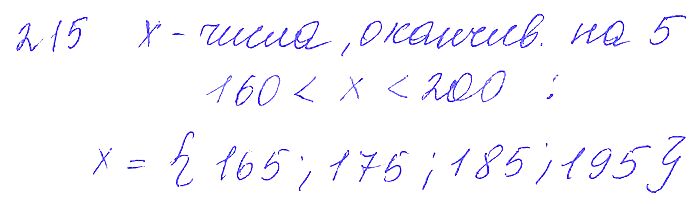 215 x - числа, оканчив. на 5
160 < x < 200 :
x = { 165 ; 175 ; 185 ; 195 }